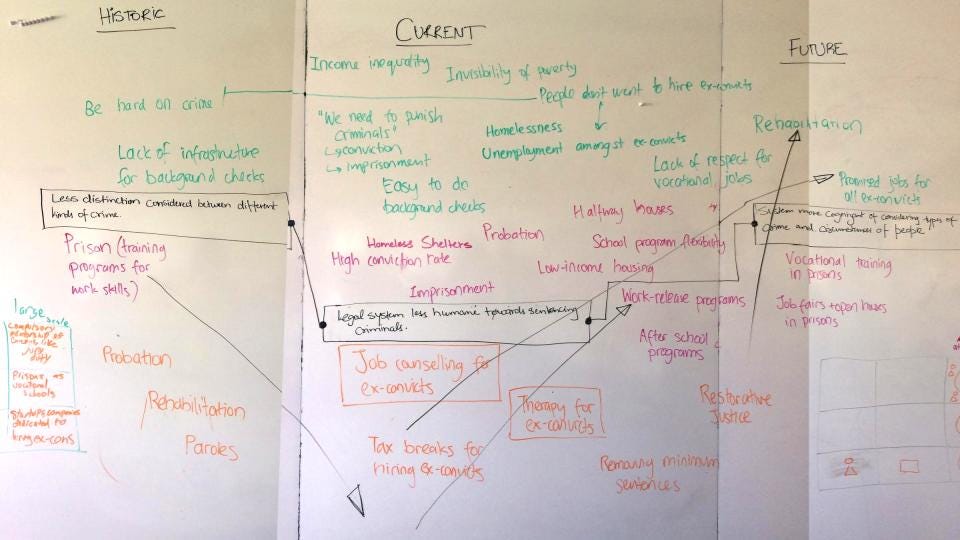 HISTORIC
Be hard on crime
Lack of infrastructure
for background checks
Less distinction considered between different
kinds of crime.
Prison (training
programs for
work skills)
large
scale
compulsory
mentorship of
convicts like
jury
duty
Prisons as
vocational
schools
startups/companies
dedicated to
hiring ex-cons
Probation
Rehabilitation
Paroles
CURRENT
Income inequality
Invisibility of poverty
People don't want to hire ex-convicts
"We need to punish
criminals"
↳ conviction
↳ imprisonment
Homelessness
Unemployment amongst ex-convicts
Easy to do
background checks
Lack of respect for
vocational jobs
Halfway houses
Homeless Shelters
Probation
School program flexibility
High conviction rate
Low-income housing
Imprisonment
Work-release programs
Legal system less humane towards sentencing
criminals.
After school
programs
Job counselling for
ex-convicts
Therapy for
ex-convicts
Restorative
Justice
Tax breaks for
hiring ex-convicts
Removing minimum
sentences
FUTURE
Rehabilitation
Promised jobs for
all ex-convicts
System more cognizant of considering types of
crime and circumstances of people
Vocational training
in prisons
Job fairs + open houses
in prisons